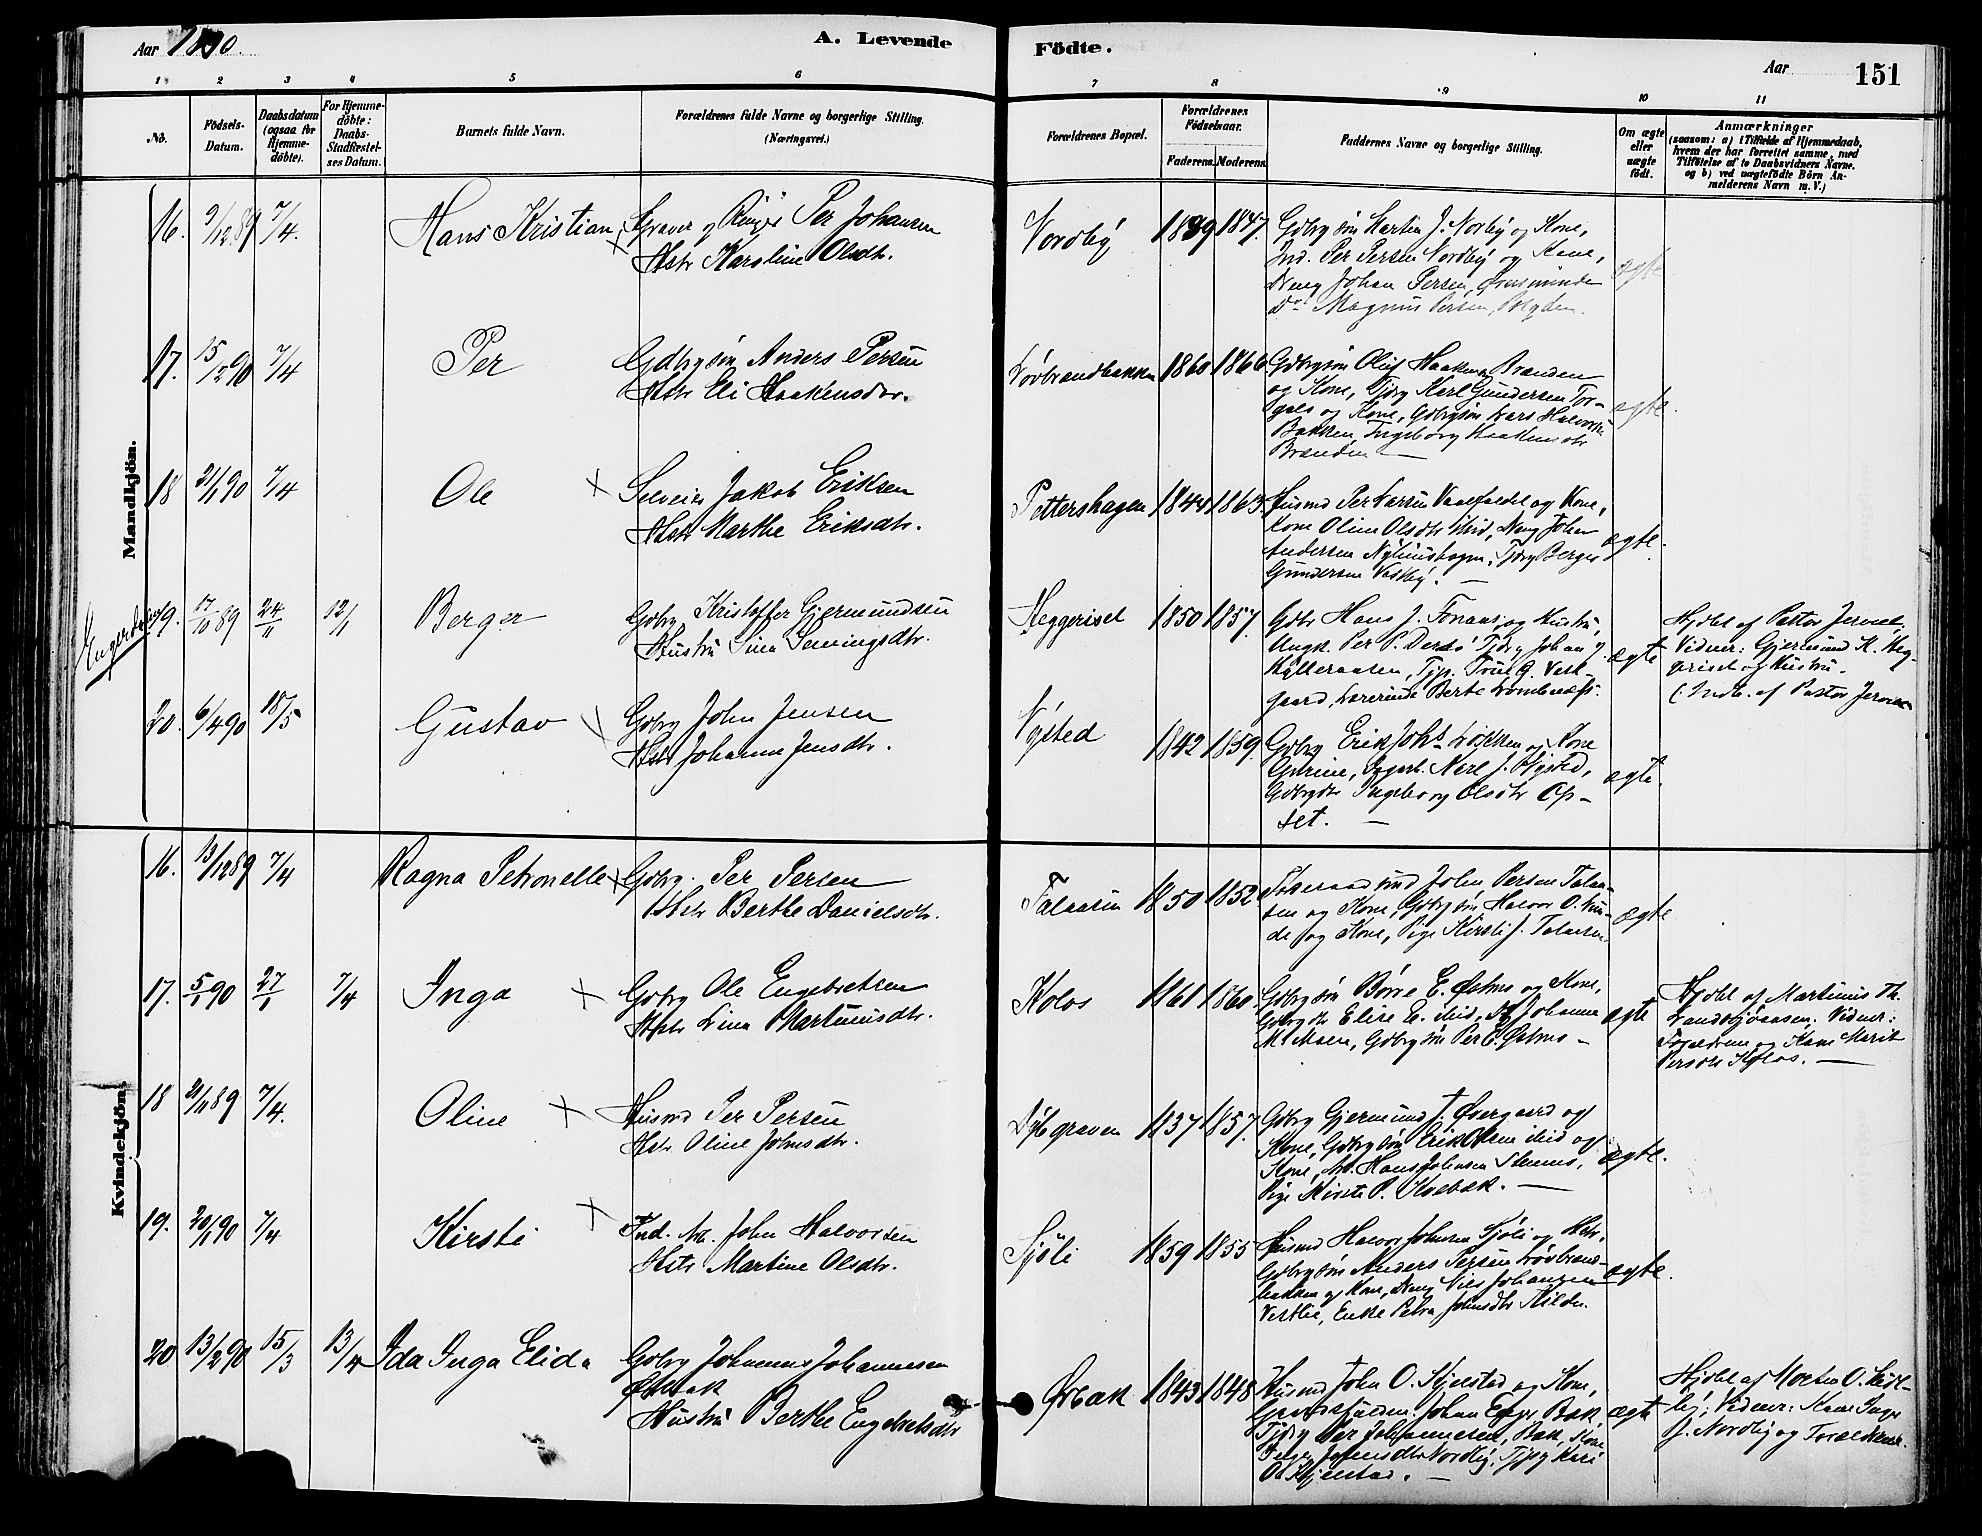 Aar 1890.
A. Levende
Födte.
Aar
151
1 2 3 4 5 6 7 8 9 10 11
No.
Födsels-
Datum.
Daabsdatum
(ogsaa for
Hjemme-
döbte).
For Hjemme-
döbte:
Daabs-
Stadfæstel-
ses Datum.
Barnets fulde Navn.
Forældrenes fulde Navne og borgerlige Stilling.
(Næringsvei.)
Forældrenes Bopæl.
Forældrenes
Födselsaar.
Faderens. Moderens.
Faddernes Navne og borgerlige Stilling.
Om ægte
eller
uægte
födt.
Anmærkninger
(saasom: a) i Tilfælde af Hjemmedaab,
hvem der har forrettet samme, med
Tilföielse af to Daabsvidners Navne.
og b) ved uægtefödte Börn An-
melderens Navn m. V.)
Mandkjön.
16. 9/12 89 7/4. Hans Kristian Graver og Ringer Per Johansen
Hstr Karoline Olsdtr.
Nordby 1839 1847.
Gdbrgsön Martin J. Norby og Kone,
Ind. Per Persen Nordby og Kone,
Dreng Johan Persen,
Do Magnus Persen
ægte
17. 15/2 90 7/4 Per
Gdbrgsön Anders Persen
Hstr Eli Haakensdtr.
Lövbrændbakken 1860 1866
Gdbrgsön Oluf Haakensen Brænden
og Kone, Tjbrg Karl Gundersen Tor-
og Kone, Gdbrgsön Lars Halvorsen
Bakken, Ingeborg Haakensdtr
Brænden
ægte.
18 21/1 90 7/4 Ole
Selveier Jakob Eriksen
Hstr Marthe Eriksdtr.
Pettershagen 1844 1863
Husmd Per Larsen og Kone,
Kone Oline Olsdtr ibid, Dreng Johan
Andersen Nylundhagen, Tjbrg Berger
Gundersen Vestby.
ægte.
Engerdalen
19. 17/10 89 24/11 12/1 Berger
Gdbrg Kristoffer Gjermundsen
Hustru Sina Semingsdtr.
Heggeriset 1850 1857.
Gdbr Hans J. Fonaas og Hustru,
Ungk. Per P. Tjbrg Johan J.
Tjp. Trine G. Vest-
gaard Lærerinde Berte
ægte
Hjdbt af Pastor Jervel,
Vidner: Gjermund K. Heg-
geriset og Hustru.
(Indb. af Pastor Jervel
20. 6/4 90 18/5 Gustav
Gdbrg John Jensen
Hstr Johanne Jensdtr.
Nysted 1842 1859.
Gdbrg Erik Johs. Lökken og Kone
J. Nysted,
Gdbrgdtr Ingeborg Olsdtr Op-
set.
ægte.
Kvindekjön.
16. 13/12 89 7/4 Ragna Petronelle
Gdbrg. Per Persen
Hstr Berthe Danielsdtr.
Talaasen 1850 1852
Föderaadsmd John Persen Talaa-
sen og Kone, Gdbrgsön Halvor O. Sun-
de og Kone, Pige Kirsti J. Talaasen
ægte
17. 5/1 90 27/1 7/4 Inga
Gdbrg Ole Engebretsen
Hstr Lina Martinusdtr.
Kolos 1861 1860
Gdbrgsön Börre E. Östmo og Kone,
Gdbrgdtr Elise E. ibid, Johanna
M. Moen, Gdbrgsön Per E. Östmo
ægte
Hjdbt af Martinus Th.
Landsjöaasen. Vidner:
Forældrene og Kone Marit
Persdtr Kolos.
18 21/11 89 7/4. Oline
Husmd Per Persen
Hstr Oline Johnsdtr.
Dybgraven 1837 1857.
Gdbrg Gjermund T. Övergaard og
Kone, Gdbrgsön Erik Olsen ibid og
Kone, Arb. Hans Johnsen
Pige Kirsti P.
ægte.
19. 20/1 90 7/4 Kirsti
Ind. Arb. John Halvorsen
Hstr Martine Olsdtr.
Sjöli 1859 1855
Husmd Halvor Johnsen Sjöli og Hstr,
Gdbrgsön Anders Persen Lövbrænd-
bakken og Kone, Dreng Nils Johansen
Vestbie, Enke Petra Johnsdtr Kilde.
ægte.
20 13/2 90 15/3 13/4 Ida Inga Elida
Gdbrg Johannes Johannesen
Örbak
Hustru Berthe Engebretsdtr
Örbak 1843 1848
Husmd John O. Kjelstad og Kone,
Johan Bak,
Tjbrg Per Johannesen, Bak, Kone
Nordby, Tjpg Kari
O. Kjelstad.
ægte
Hjdbt af Morten O. Sæl-
by; Vidner: Kone Inge
J. Nordby og Forældrene.